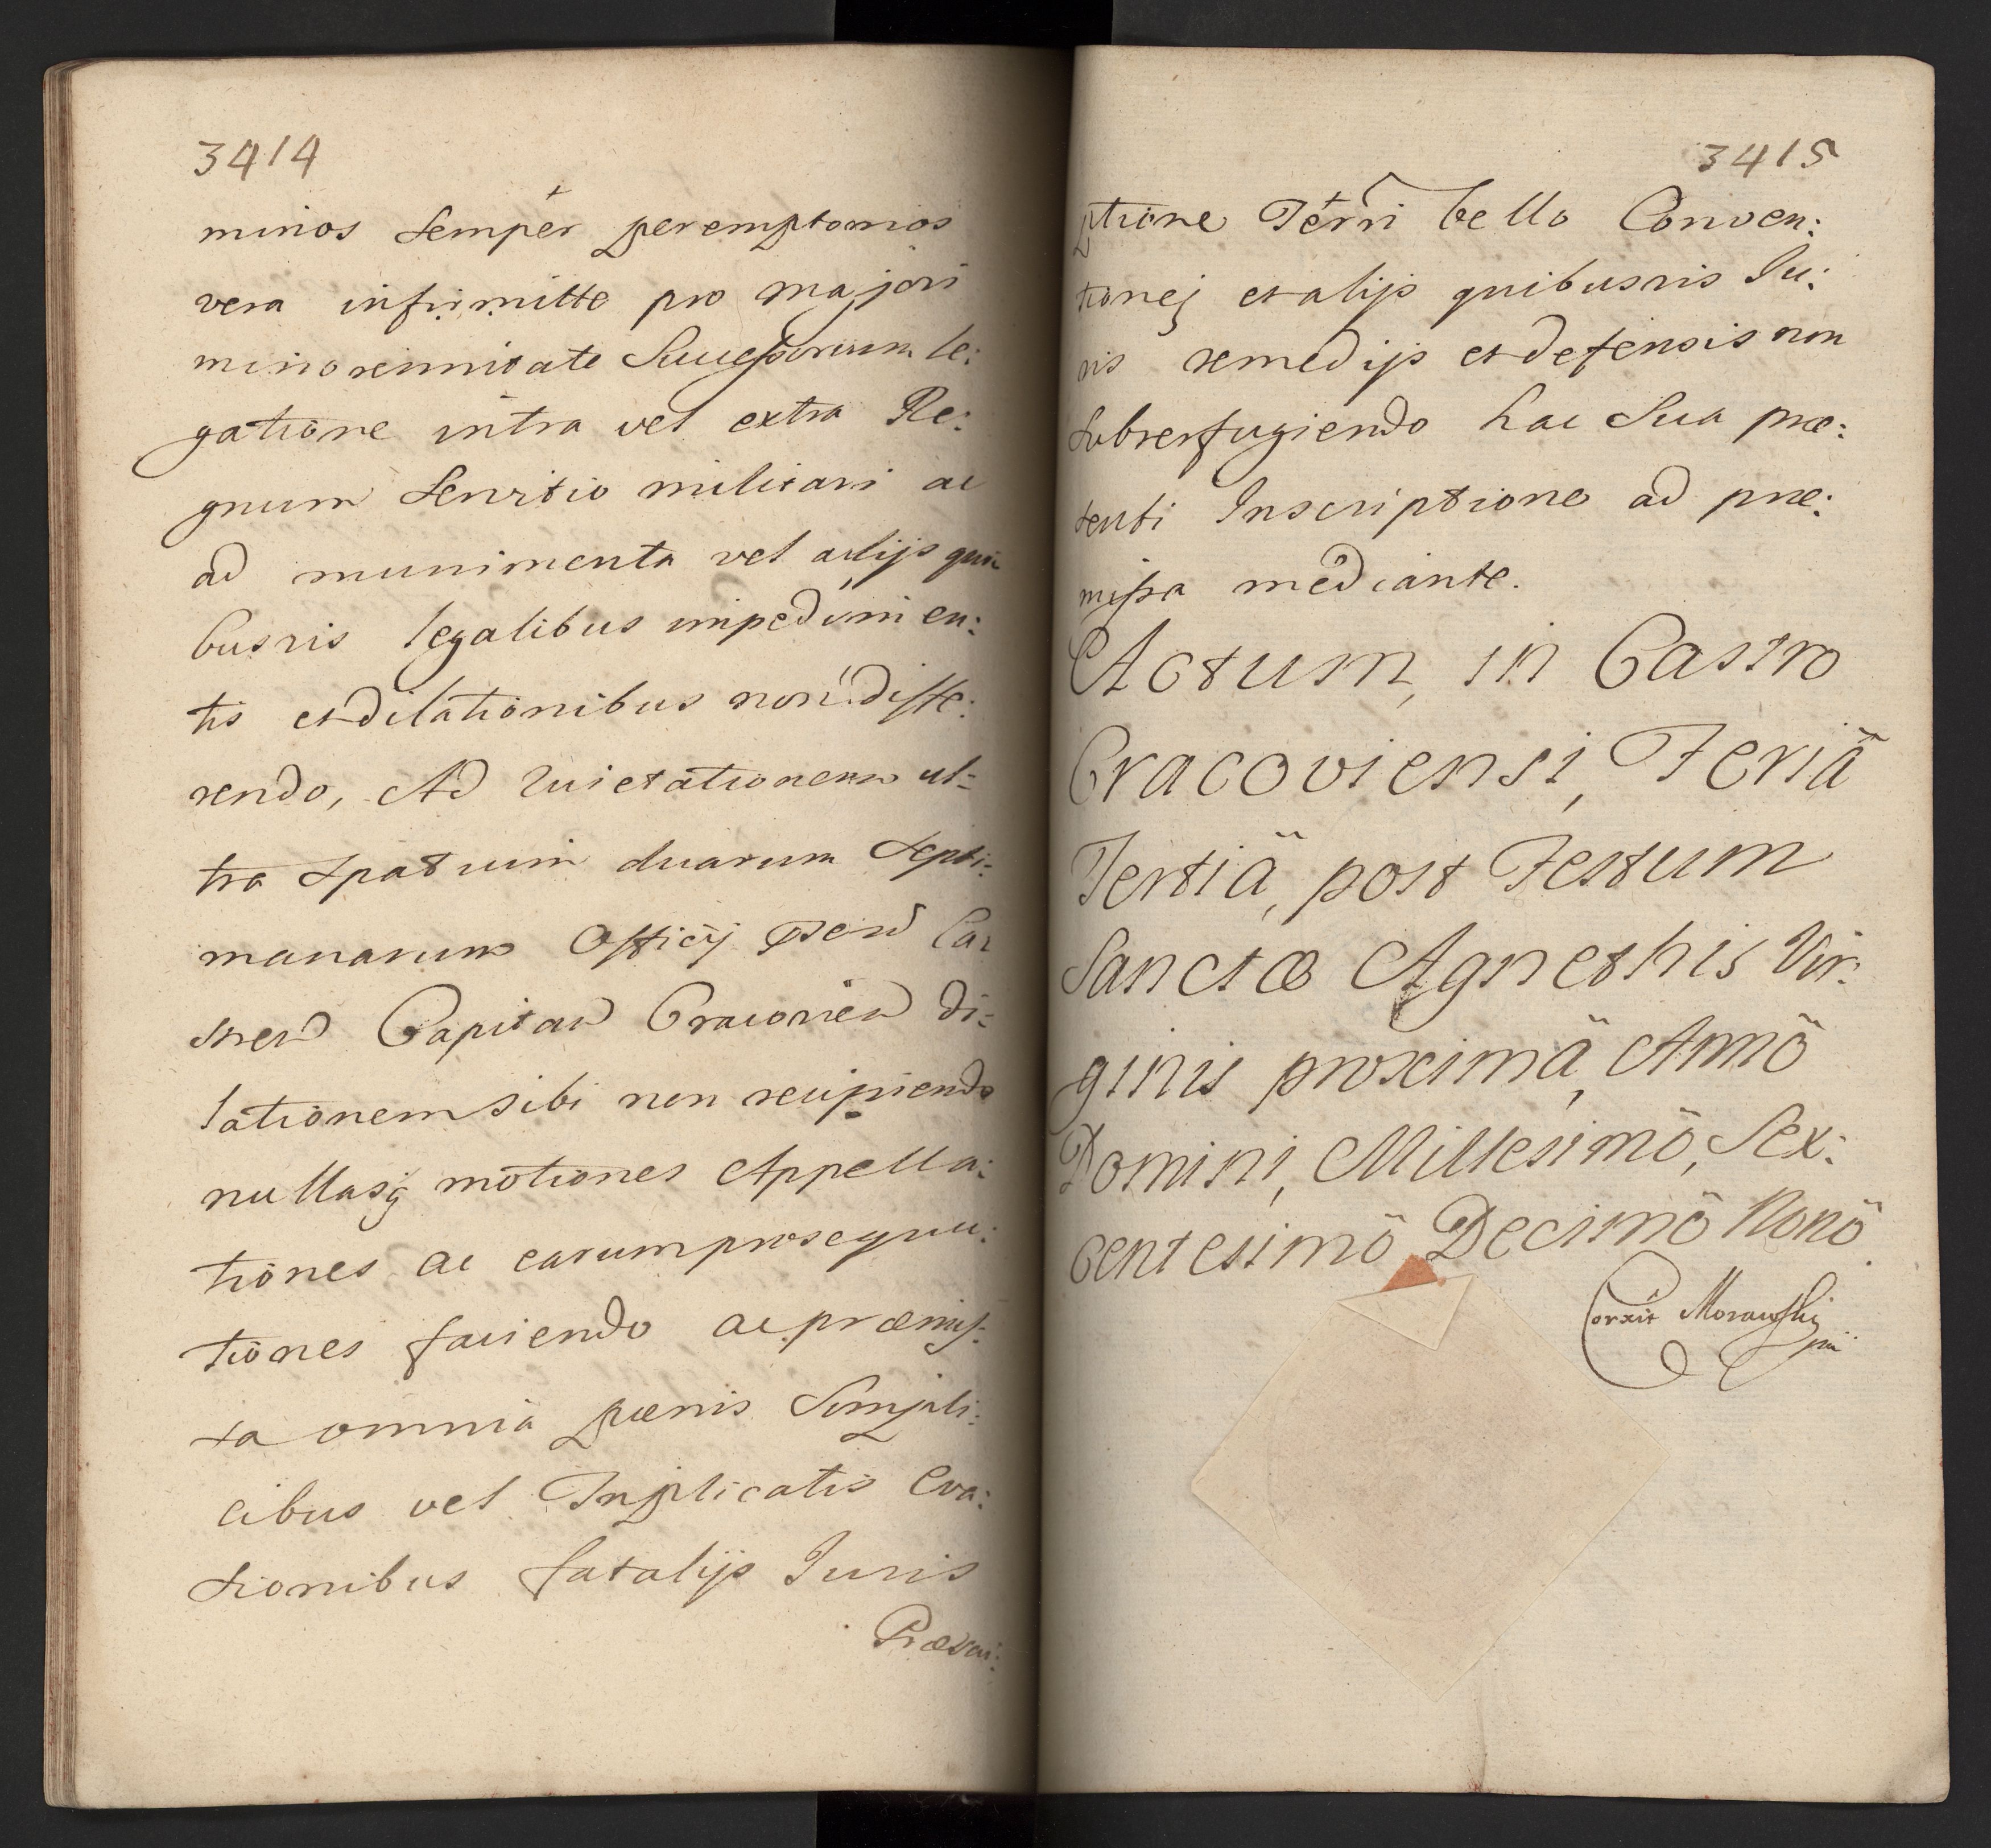 3414
minos semper peremptorios
vera infirmitte pro majori
minorennitate Successorum le:
gatione intra vel extra Re:
gnum servitio militari ac
ad munimenta vel aliis qui
busvis legalibus impedimen:
tis et dilationibus non diffe:
rendo, Ad Quietationem ul=
tra spatium duarum septi=
manarum Officij
Capitan Cracovien di=
lationem sibi non recipiendo
nullasq motiones Appella:
tiones ac earum prosequu:
tiones faciendo ac præmis:
ta omnia pænis Simpli:
cibus vel Inplicatis Eva:
sionibus fatalijs Juris
Prævari:
3415
ptione Terri bello Conven:
tionej et alijs quibusvis Ju:
ris remedijs et defensis non
subverfugiendo hac Sua præ:
senti Inscriptione ad præ:
missa mediante.
Actum, in Castro
Cracoviensi, Feriâ
Tertiâ, post Festum
Sanctæ Agnethis Vir:
ginis proximâ, Annô
Domini, Millesimô, Sex:
centesimô Decimô Nonô.
Corxit Morawski